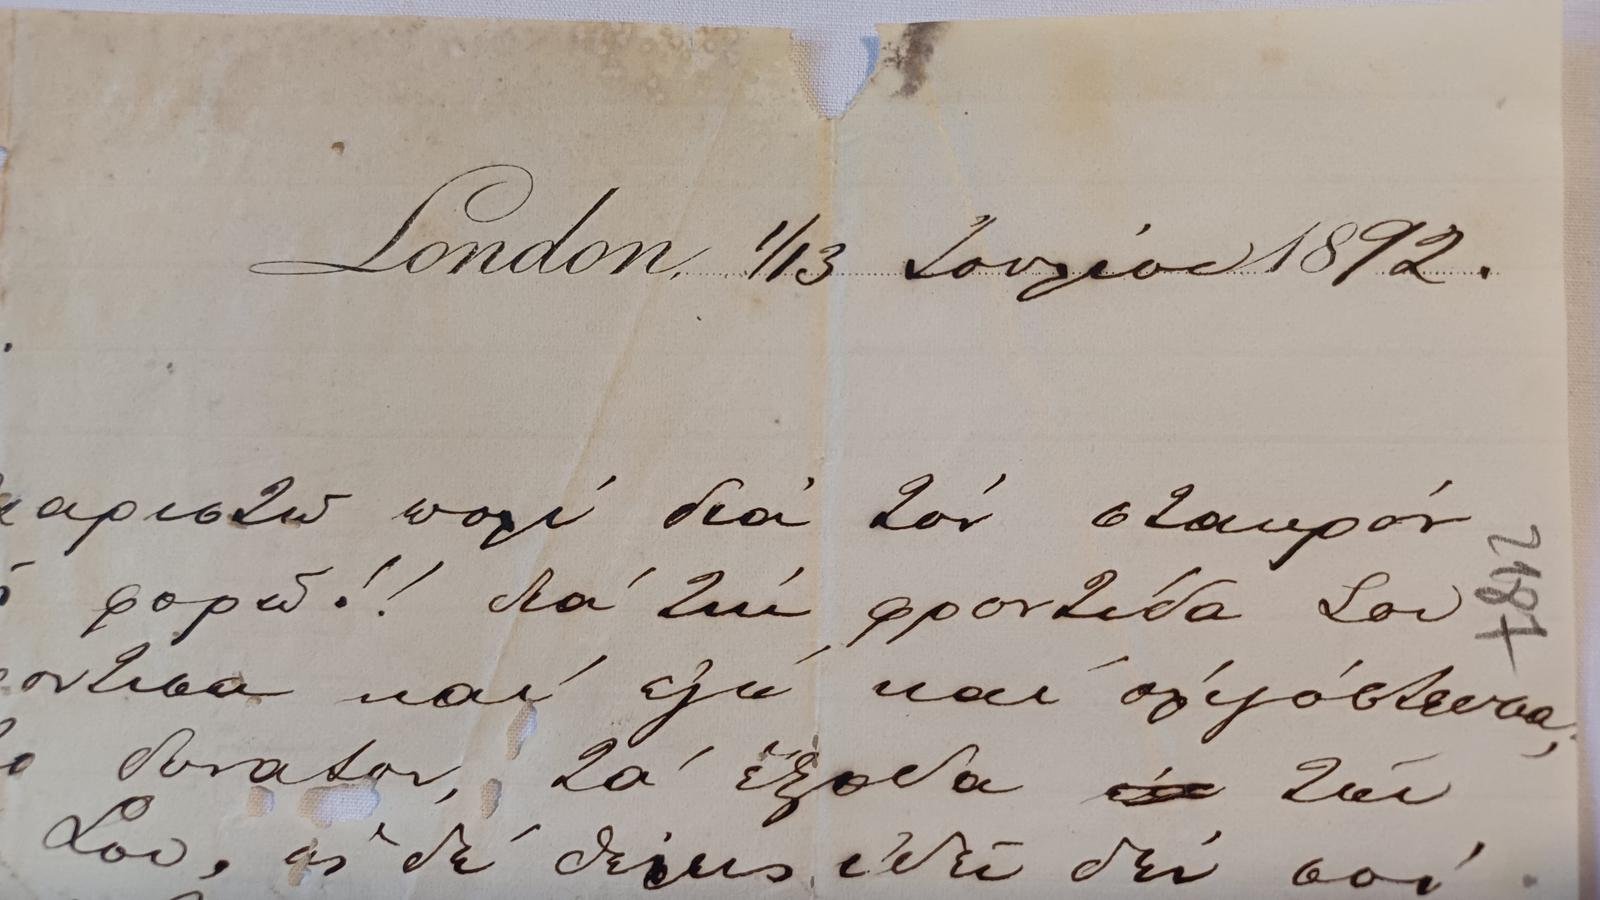 London, 1/13 Ιουλίου 1892.
χαριστῶ πολύ διά τόν σταυρόν
φορῶ!! διά τήν φροντίδα Σου
όντισα καί ἐγώ καί ὀλιγόστευσα,
δυνατον, τά ἔξοδα τῶν
Σου, δέ δέν σοί